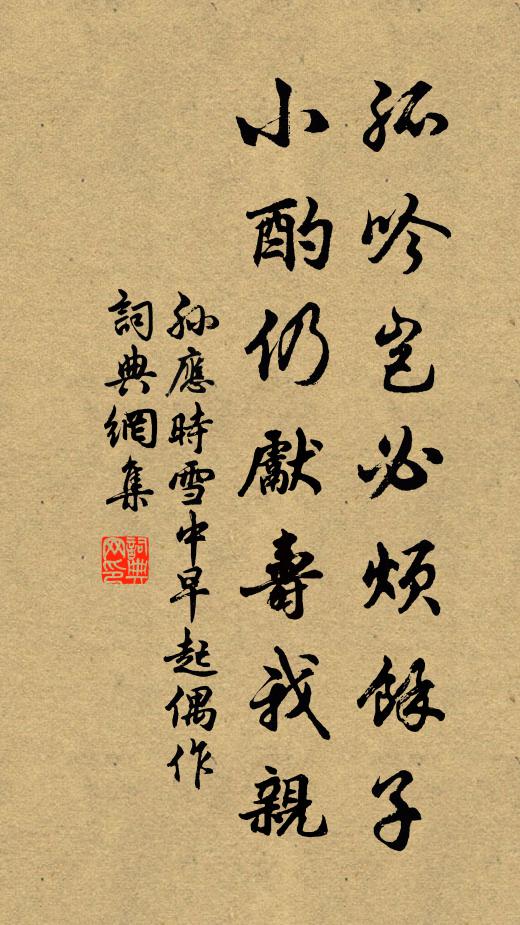 孤吟豈必煩餘子
小酌仍獻壽我親
孫應時雪中早起偶作
詞典網集
詞典
网印